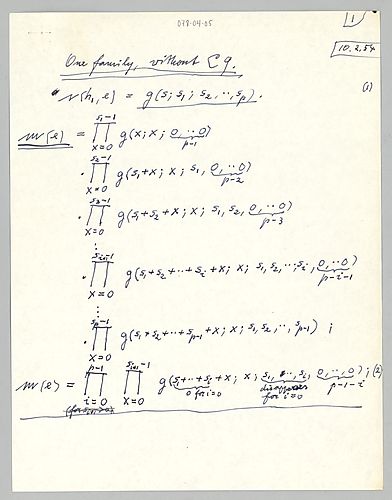 078-04-05
1
10.2.54
One family, without Eq.
(1)
r(h, e) = g(s; s₁; s₂, ··, sₚ).
w(e) = ∏_{x=0}^{s₁-1} g(x; x; 0, ··0)
p-1
· ∏_{x=0}^{s₂-1} g(s₁+x; x; s₁, 0, ··0)
p-2
· ∏_{x=0}^{s₃-1} g(s₁+s₂+x; x; s₁, s₂, 0, ··0)
p-3
⋮
· ∏_{x=0}^{sᵢ₊₁-1} g(s₁+s₂+··+sᵢ+x; x; s₁, s₂, ··, sᵢ, 0, ··0)
p-i-1
⋮
· ∏_{x=0}^{sₚ-1} g(s₁+s₂+··+sₚ₋₁+x; x; s₁, s₂, ··, sₚ₋₁) ;
w(e) = ∏_{i=0}^{p-1} ∏_{x=0}^{sᵢ₊₁-1} g(s₁+··+sᵢ+x; x; s₁, ··, sᵢ, 0, ··, 0) ; (2)
0 for i=0 disappears for i=0 p-1-i